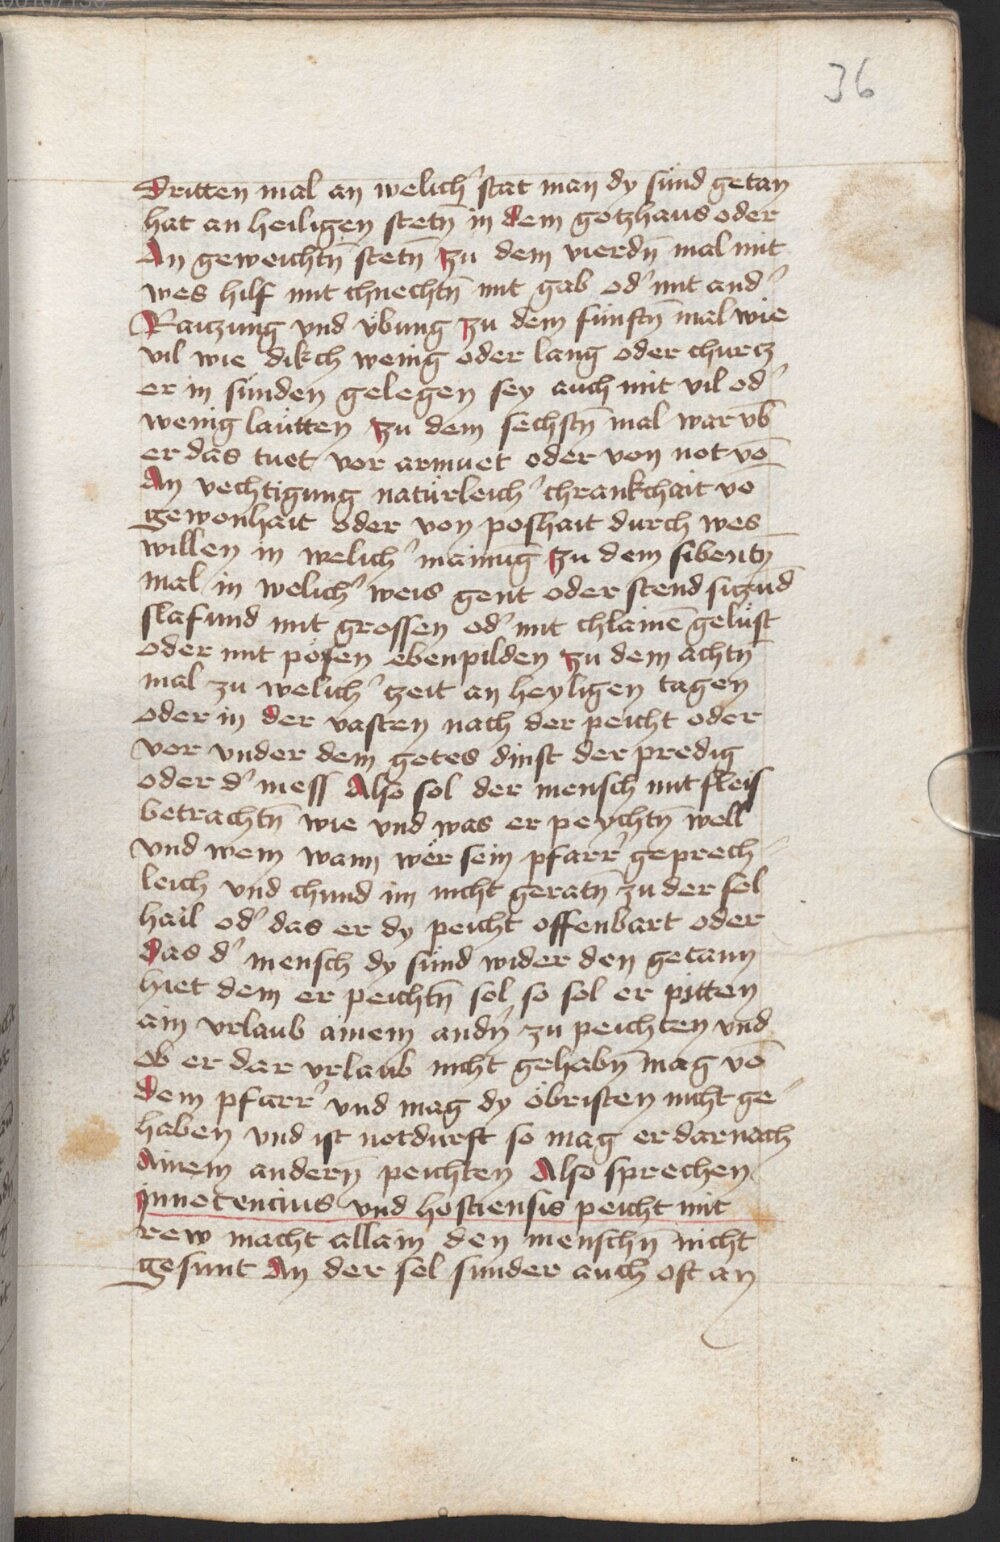 36
dritten mal an welich' stat man dy sünd getan
hat an heiligen stetn̄ in dem gotzhaus oder
An geweichtn̄ stetn̄ zu dem vierdn̄ mal mit
wes hilf mit chnechtn̄ mit gab od' mit and'
Raiczung vnd übung zu dem fünftn̄ mal wie
vil wie dikch wenig oder lang oder churcz
er in sünden gelegen sey auch mit vil od'
wenig läutten zu dem sechstn̄ mal war vb̄
er das tuet vor armuet oder von not vō
An vechtigung natürleich' chrankchait vō
gewonhait oder von poshait durch wes
willen in welich' mainūg zu dem sibentn̄
mal in welich' weis gent oder stend siczūd
slafund mit grossen od' mit chlainē gelüst
oder mit pösen ebenpilden zu dem achtn̄
mal zu welich' czeit an heyligen tagen
oder in der vasten nach der peicht oder
vor vnder dem gotes dinst der predig
oder d' mess Also sol der mensch mit fleis
betrachtn̄ wie vnd was er peychtn̄ well
vnd wem wann wër sein pfarr' geprech
leich vnd chund im nicht geratn̄ zu der sel
hail od' das er dy peicht offenbart oder
das d' mensch dy sünd wider den getann
hiet dem er peichtn̄ sol so sol er pitten
ain vrlaub ainem andn̄ zu peichten vnd
ob er dar vrlaub nicht gehabn̄ mag vō
dem pfarr' vnd mag dy öbristen nicht ge
haben vnd ist notdurft so mag er darnach
Ainem andern̄ peichten Also sprechen
Innocencius vnd hostiensis peicht mit
rew macht allain den menschn̄ nicht
gesunt An der sel sunder auch oft an